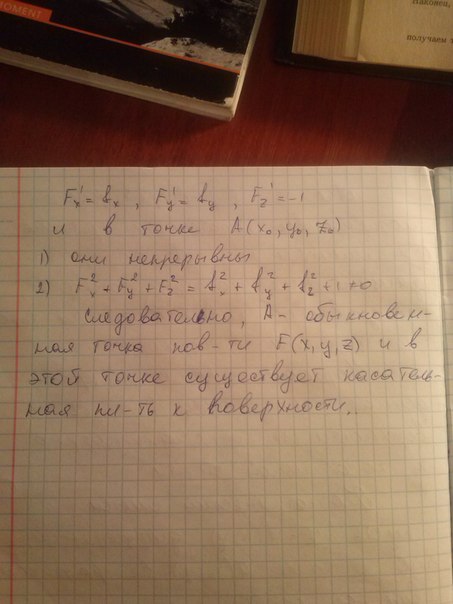 MOMENT
Наконец,
получаем
F'x = fx , F'y = fy , F'z = -1
и в точке A(x₀, y₀, z₀)
1) они непрерывны
2) F²x + F²y + F²z = f²x + f²y + f²z + 1 ≠ 0
Следовательно, A - обыкновен-
ная точка пов-ти F(x, y, z) и в
этой точке существует касатель-
ная пл-ть к поверхности.